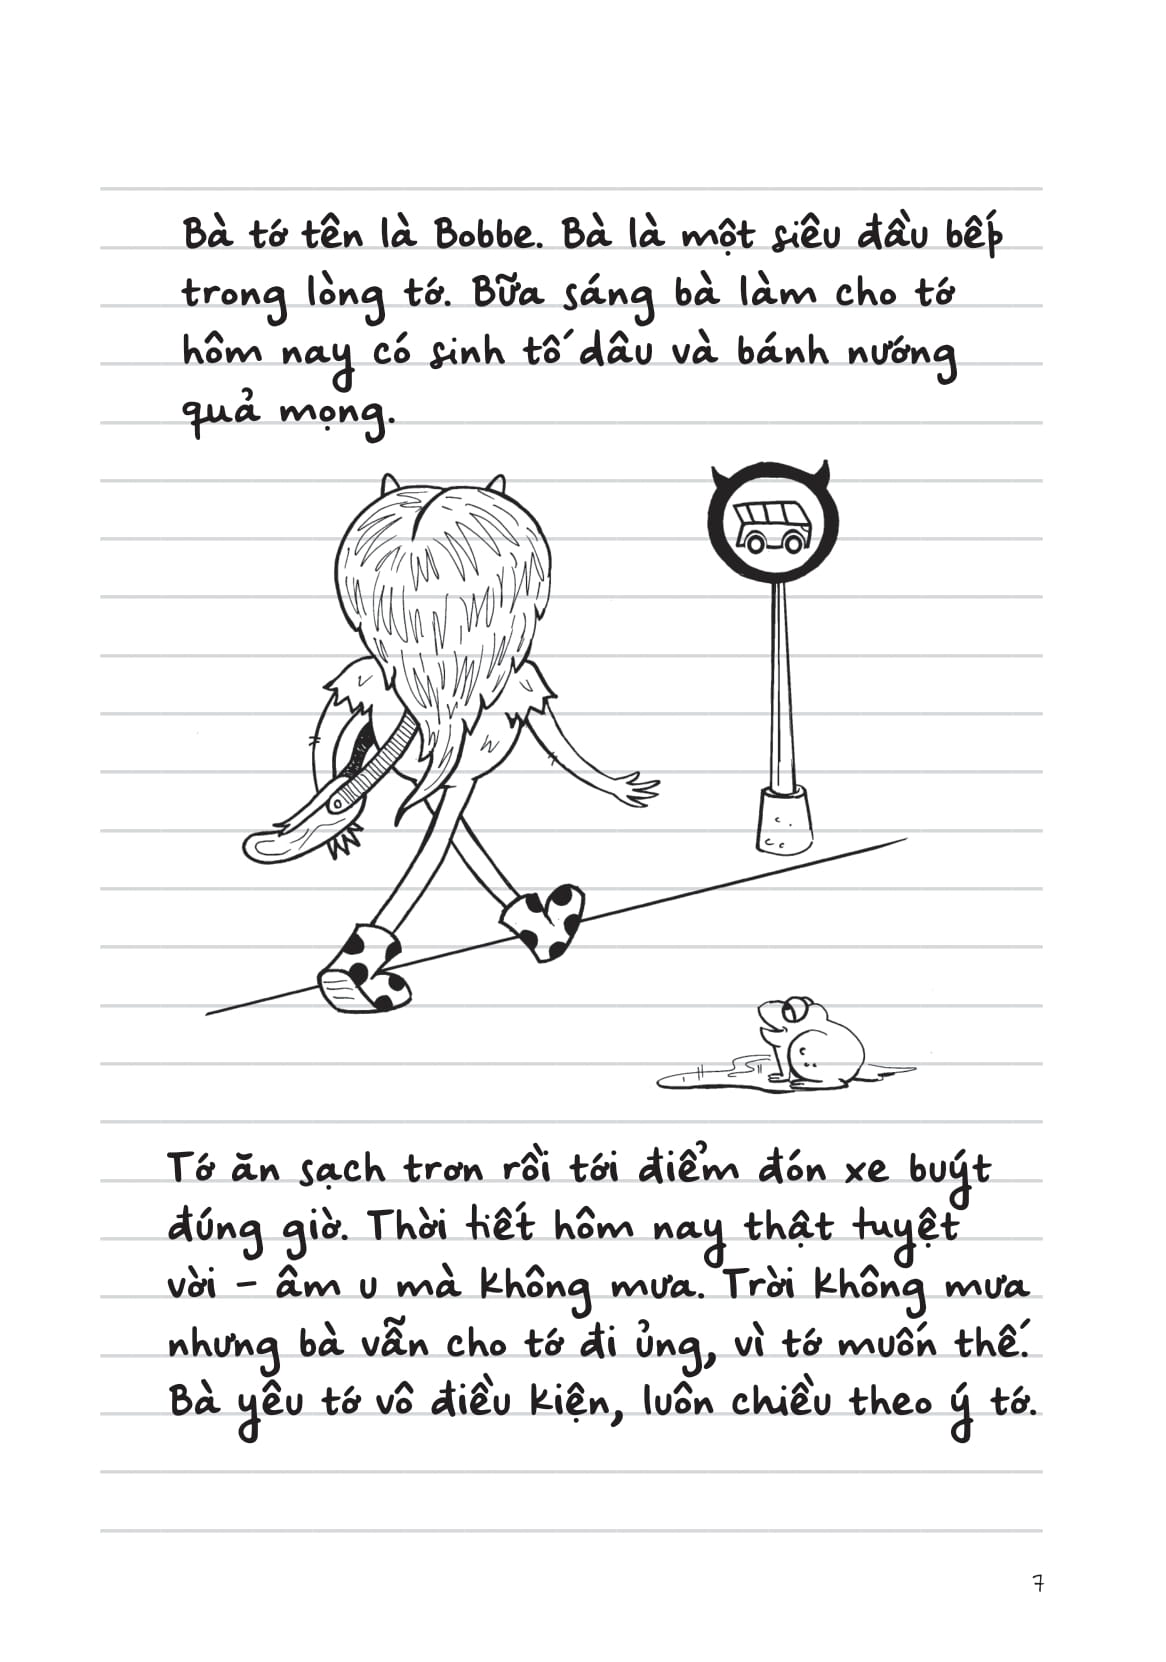 Bà tớ tên là Bobbe. Bà là một siêu đầu bếp
trong lòng tớ. Bữa sáng bà làm cho tớ
hôm nay có sinh tố dâu và bánh nướng
quả mọng.
Tớ ăn sạch trơn rồi tới điểm đón xe buýt
đúng giờ. Thời tiết hôm nay thật tuyệt
vời – âm u mà không mưa. Trời không mưa
nhưng bà vẫn cho tớ đi ủng, vì tớ muốn thế.
Bà yêu tớ vô điều kiện, luôn chiều theo ý tớ.
7